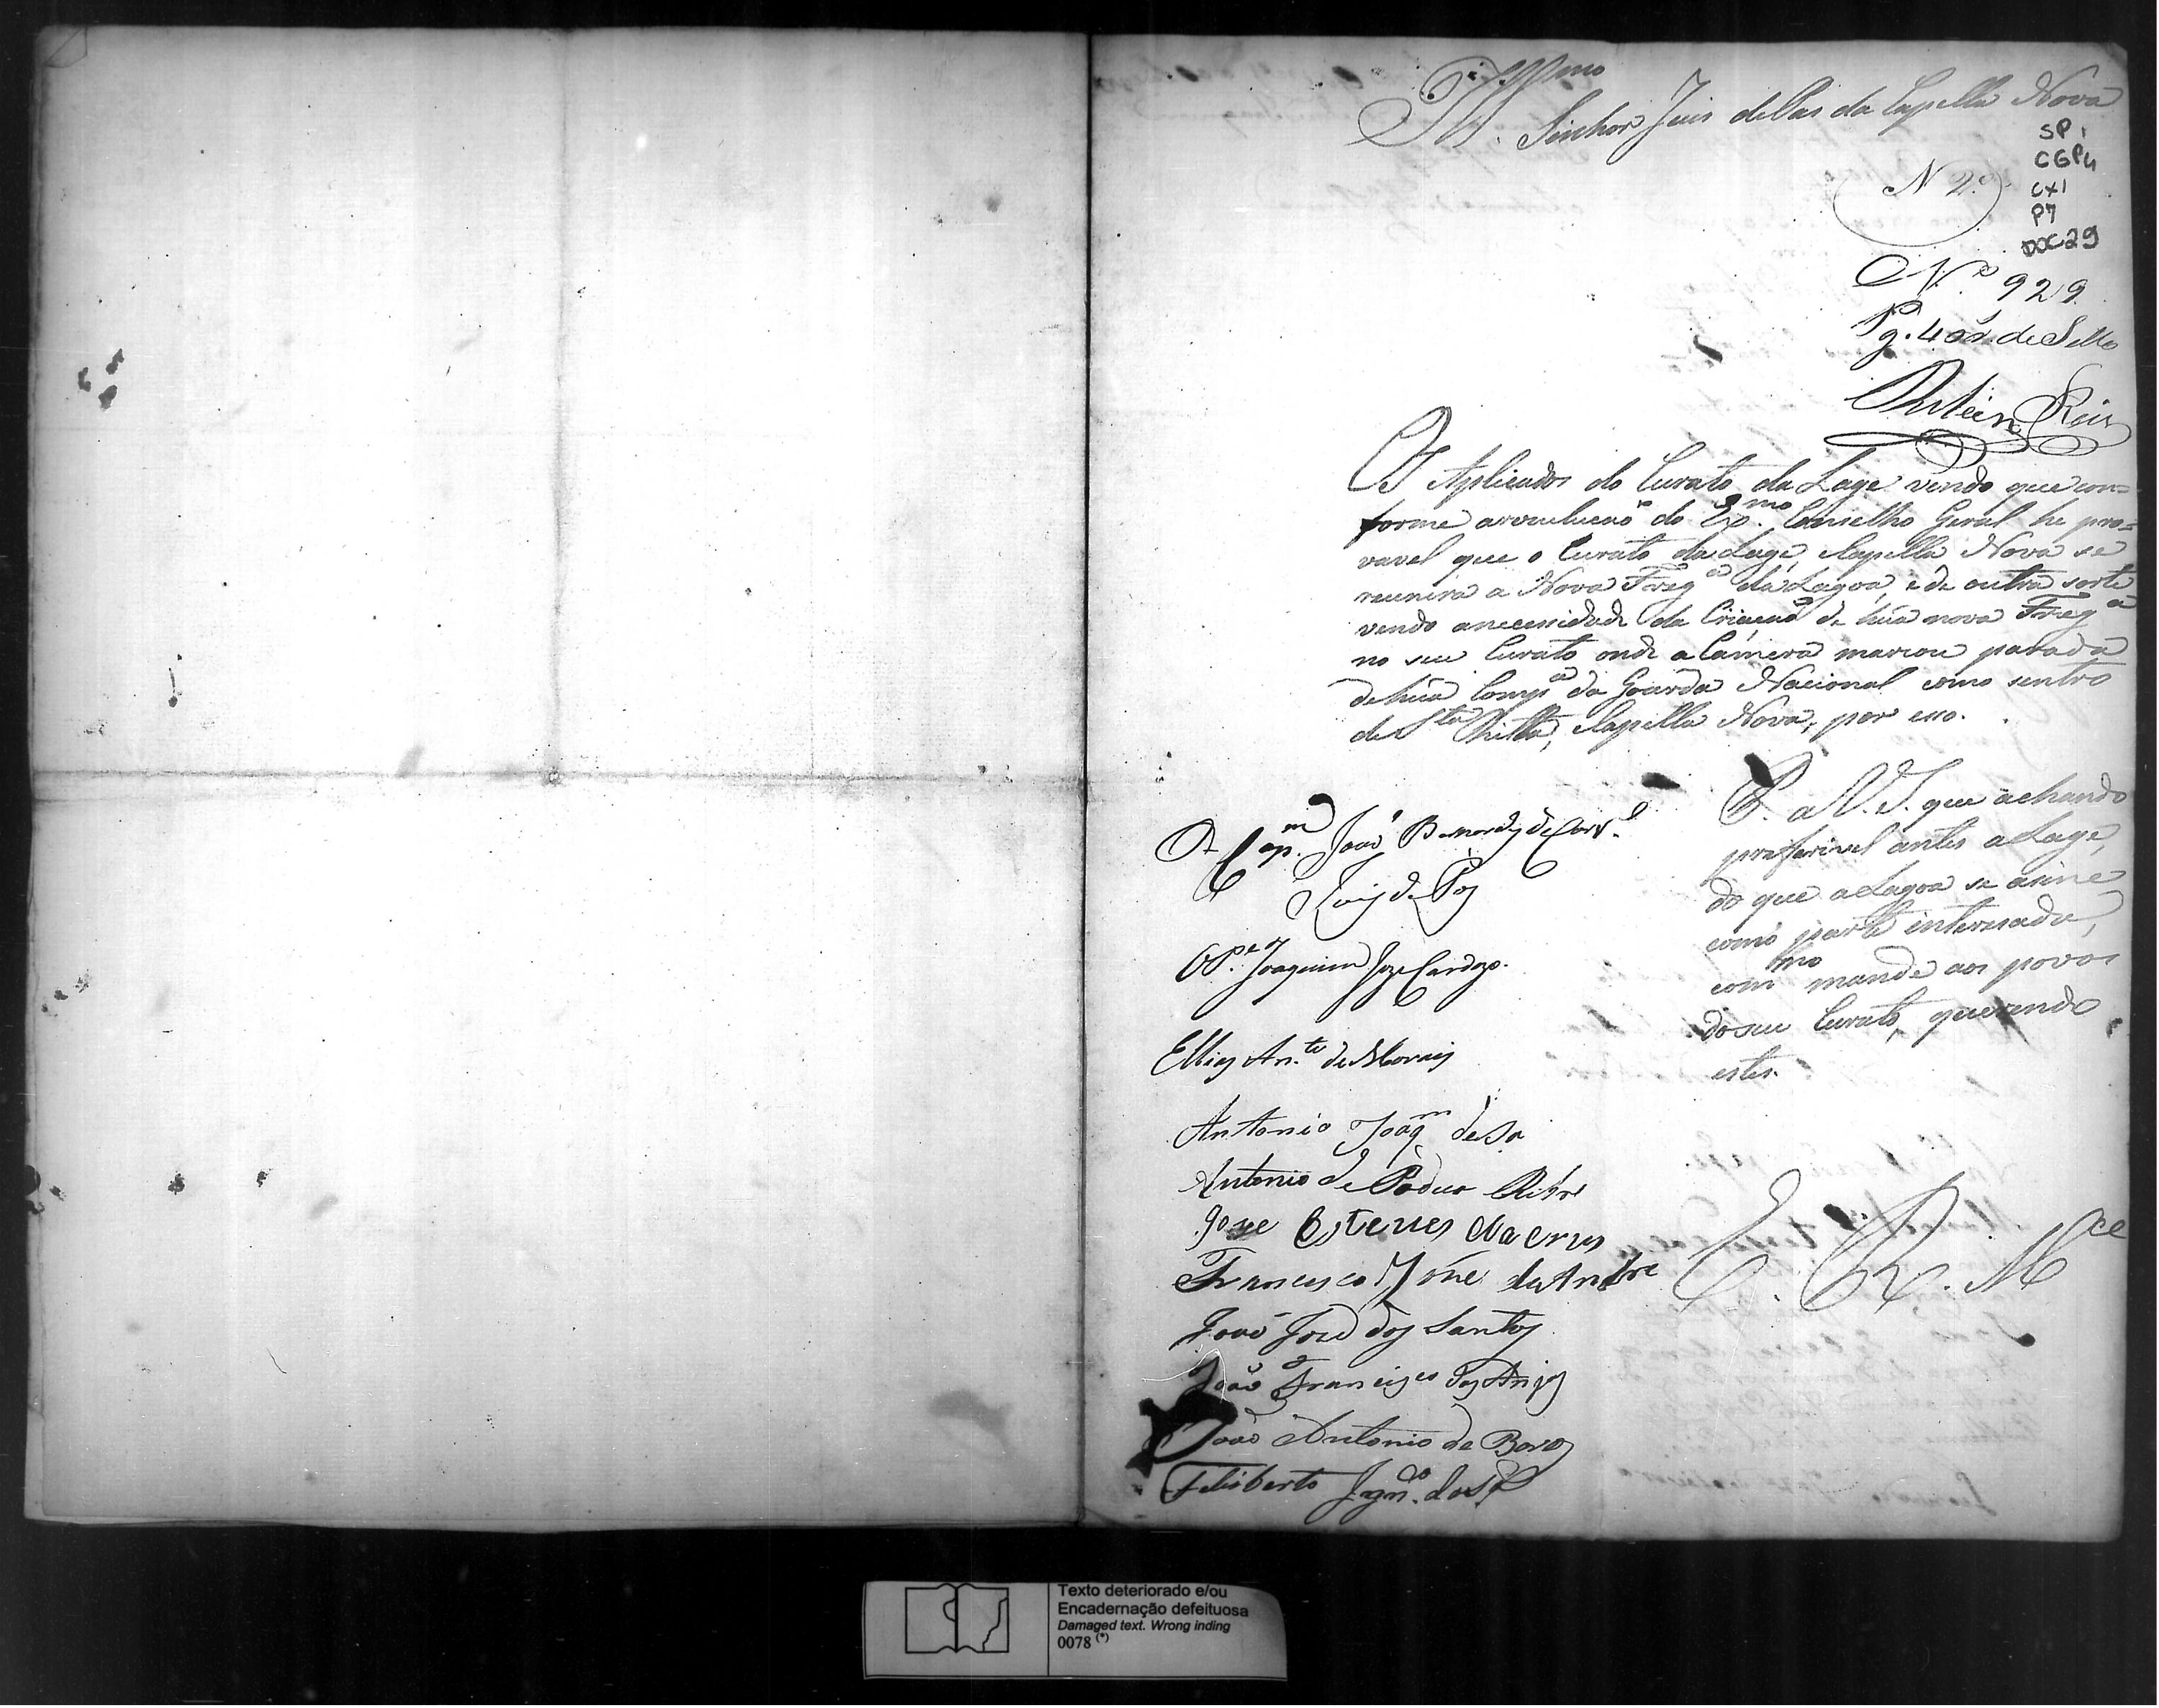 Illmo
Senhor Juis de Pas da Capella Nova
SP 1
CGP4
CX1
P7
DOC29
N 2º
N.º 929
Pg. 40 rs. de Sello
Reis
Os Aplicados do Curato da Lage vendo que con=
forme a rezulucaõ do Exmo. Conselho Geral he pro=
vavel que o Curato da Lage, Capella Nova se
reunira a Nova Fregª da Lagoa, e de outra sorte
vendo a necessidade da Criacaõ de hua nova Fregª
no seu Curato onde a Camera marcou parada
de hua Compª da Goarda Nacional como sentro
de Sta Ritta, Capella Nova, por isso.
P. a V. S. que achando
prefferivel antes a Lage,
do que a Lagoa se asine
como parte interesada,
como mande aos povos
do seu Curato, querendo
estes.
O Capm. Joaõ Bernardes de Carvº
Juis de Pas
O Pe. Joaquim Joze Cardozo.
Ellias Anto. de Morais
Antonio Joaqm de Sa
Antonio de Padua Ribrº
Joze Esteves da Crus
Francisco Jose da
Joaõ Joze dos Santos
Joaõ Francisco dos Anjos
Joaõ Antonio de
Feliberto Ignco. da Sª
E. R. Mce
Texto deteriorado e/ou
Encadernação defeituosa
Damaged text. Wrong inding
0078 (*)